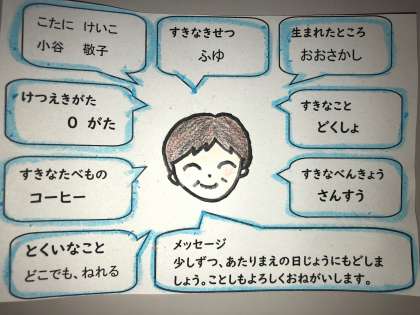 こたに けいこ
小谷 敬子
すきなきせつ
ふゆ
生まれたところ
おおさかし
けつえきがた
O がた
すきなこと
どくしょ
すきなたべもの
コーヒー
すきなべんきょう
さんすう
とくいなこと
どこでも、ねれる
メッセージ
少しずつ、あたりまえの日じょうにもどしま
しょう。ことしもよろしくおねがいします。